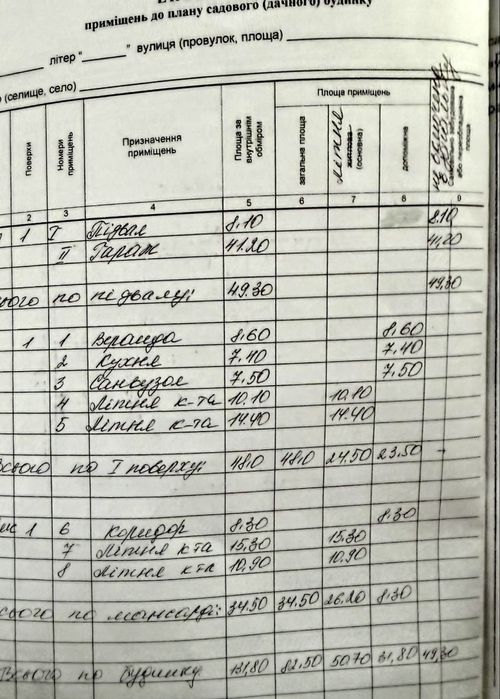 приміщень до плану садового (дачного) будинку
літер "______" вулиця (провулок, площа)
(селище, село)
Поверхи
Номери приміщень
Призначення приміщень
Площа за внутрішнім обміром
Площа приміщень
загальна площа
Літня
житлова (основна)
допоміжна
Самочинно збудована або переобладнана площа
2 3 4 5 6 7 8 9
1 I Підвал 8.10 8.10
II Гараж 41.20 41,20
ього по підвалу: 49.30 49,30
1 1 Веранда 8,60 8,60
2 Кухня 7,40 7,40
3 Санвузол 7,50 7,50
4 Літня к-та 10,10 10,10
5 Літня к-та 14.40 14.40
Всього по I поверху: 48,0 48,0 24.50 23.50 -
1 6 Коридор 8.30 8.30
7 Літня к-та 15,30 15,30
8 Літня к-та 10,90 10,90
сього по мансарді: 34.50 34.50 26.20 8.30
Всього по будинку 131,80 82.50 50.70 31,80 49,30